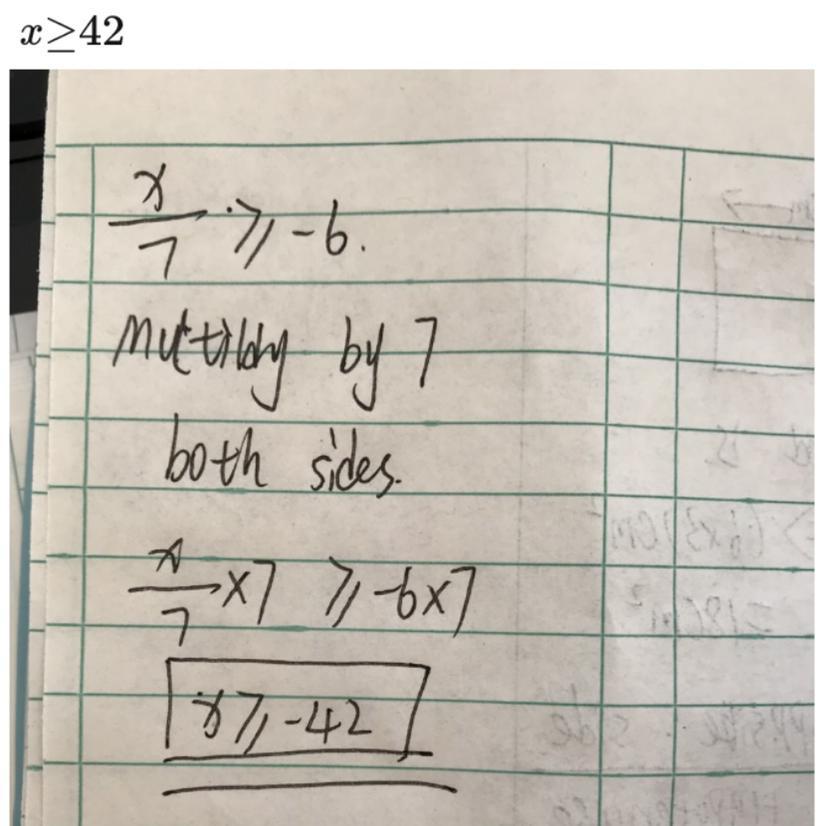 x≥42
x/7 ≥ -6.
Multibly by 7
both sides.
x/7 ×7 ≥ -6×7
x ≥ -42